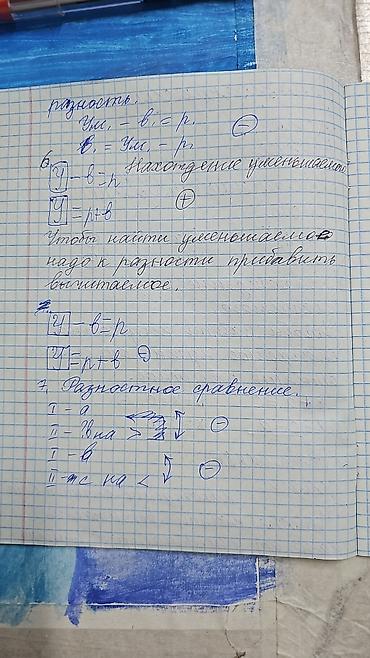 разность.
Ум. - в. = р.
в. = Ум. - р. ⊖
6. Нахождение уменьшаемого
У - в = р
У = р + в ⊕
Чтобы найти уменьшаемое
надо к разности прибавить
вычитаемое.
У - в = р
У = р + в ⊖
7. Разностное сравнение.
I - а
II - ? на > ⊖
I - в
II - с на < ⊖